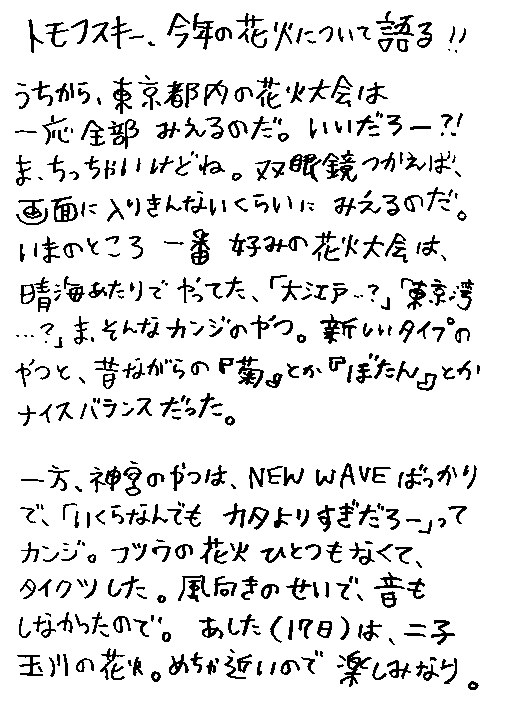 トモフスキー、今年の花火について語る!!
うちから、東京都内の花火大会は
一応全部 みえるのだ。いいだろー?!
ま、ちっちゃいけどね。双眼鏡つかえば、
画面に入りきんないくらいに みえるのだ。
いまのところ 一番 好みの花火大会は、
晴海あたりで やってた、「大江戸…?」「東京湾
…?」ま、そんなカンジのやつ。新しいタイプの
やつと、昔ながらの『菊』とか『ぼたん』とか
ナイスバランスだった。
一方、神宮のやつは、NEW WAVE ばっかり
で、「いくらなんでも カタよりすぎだろー」って
カンジ。フツウの花火 ひとつもなくて、
タイクツした。風向きのせいで、音も
しなかったので。 あした(17日)は、二子
玉川の花火。めちゃ近いので 楽しみなり。